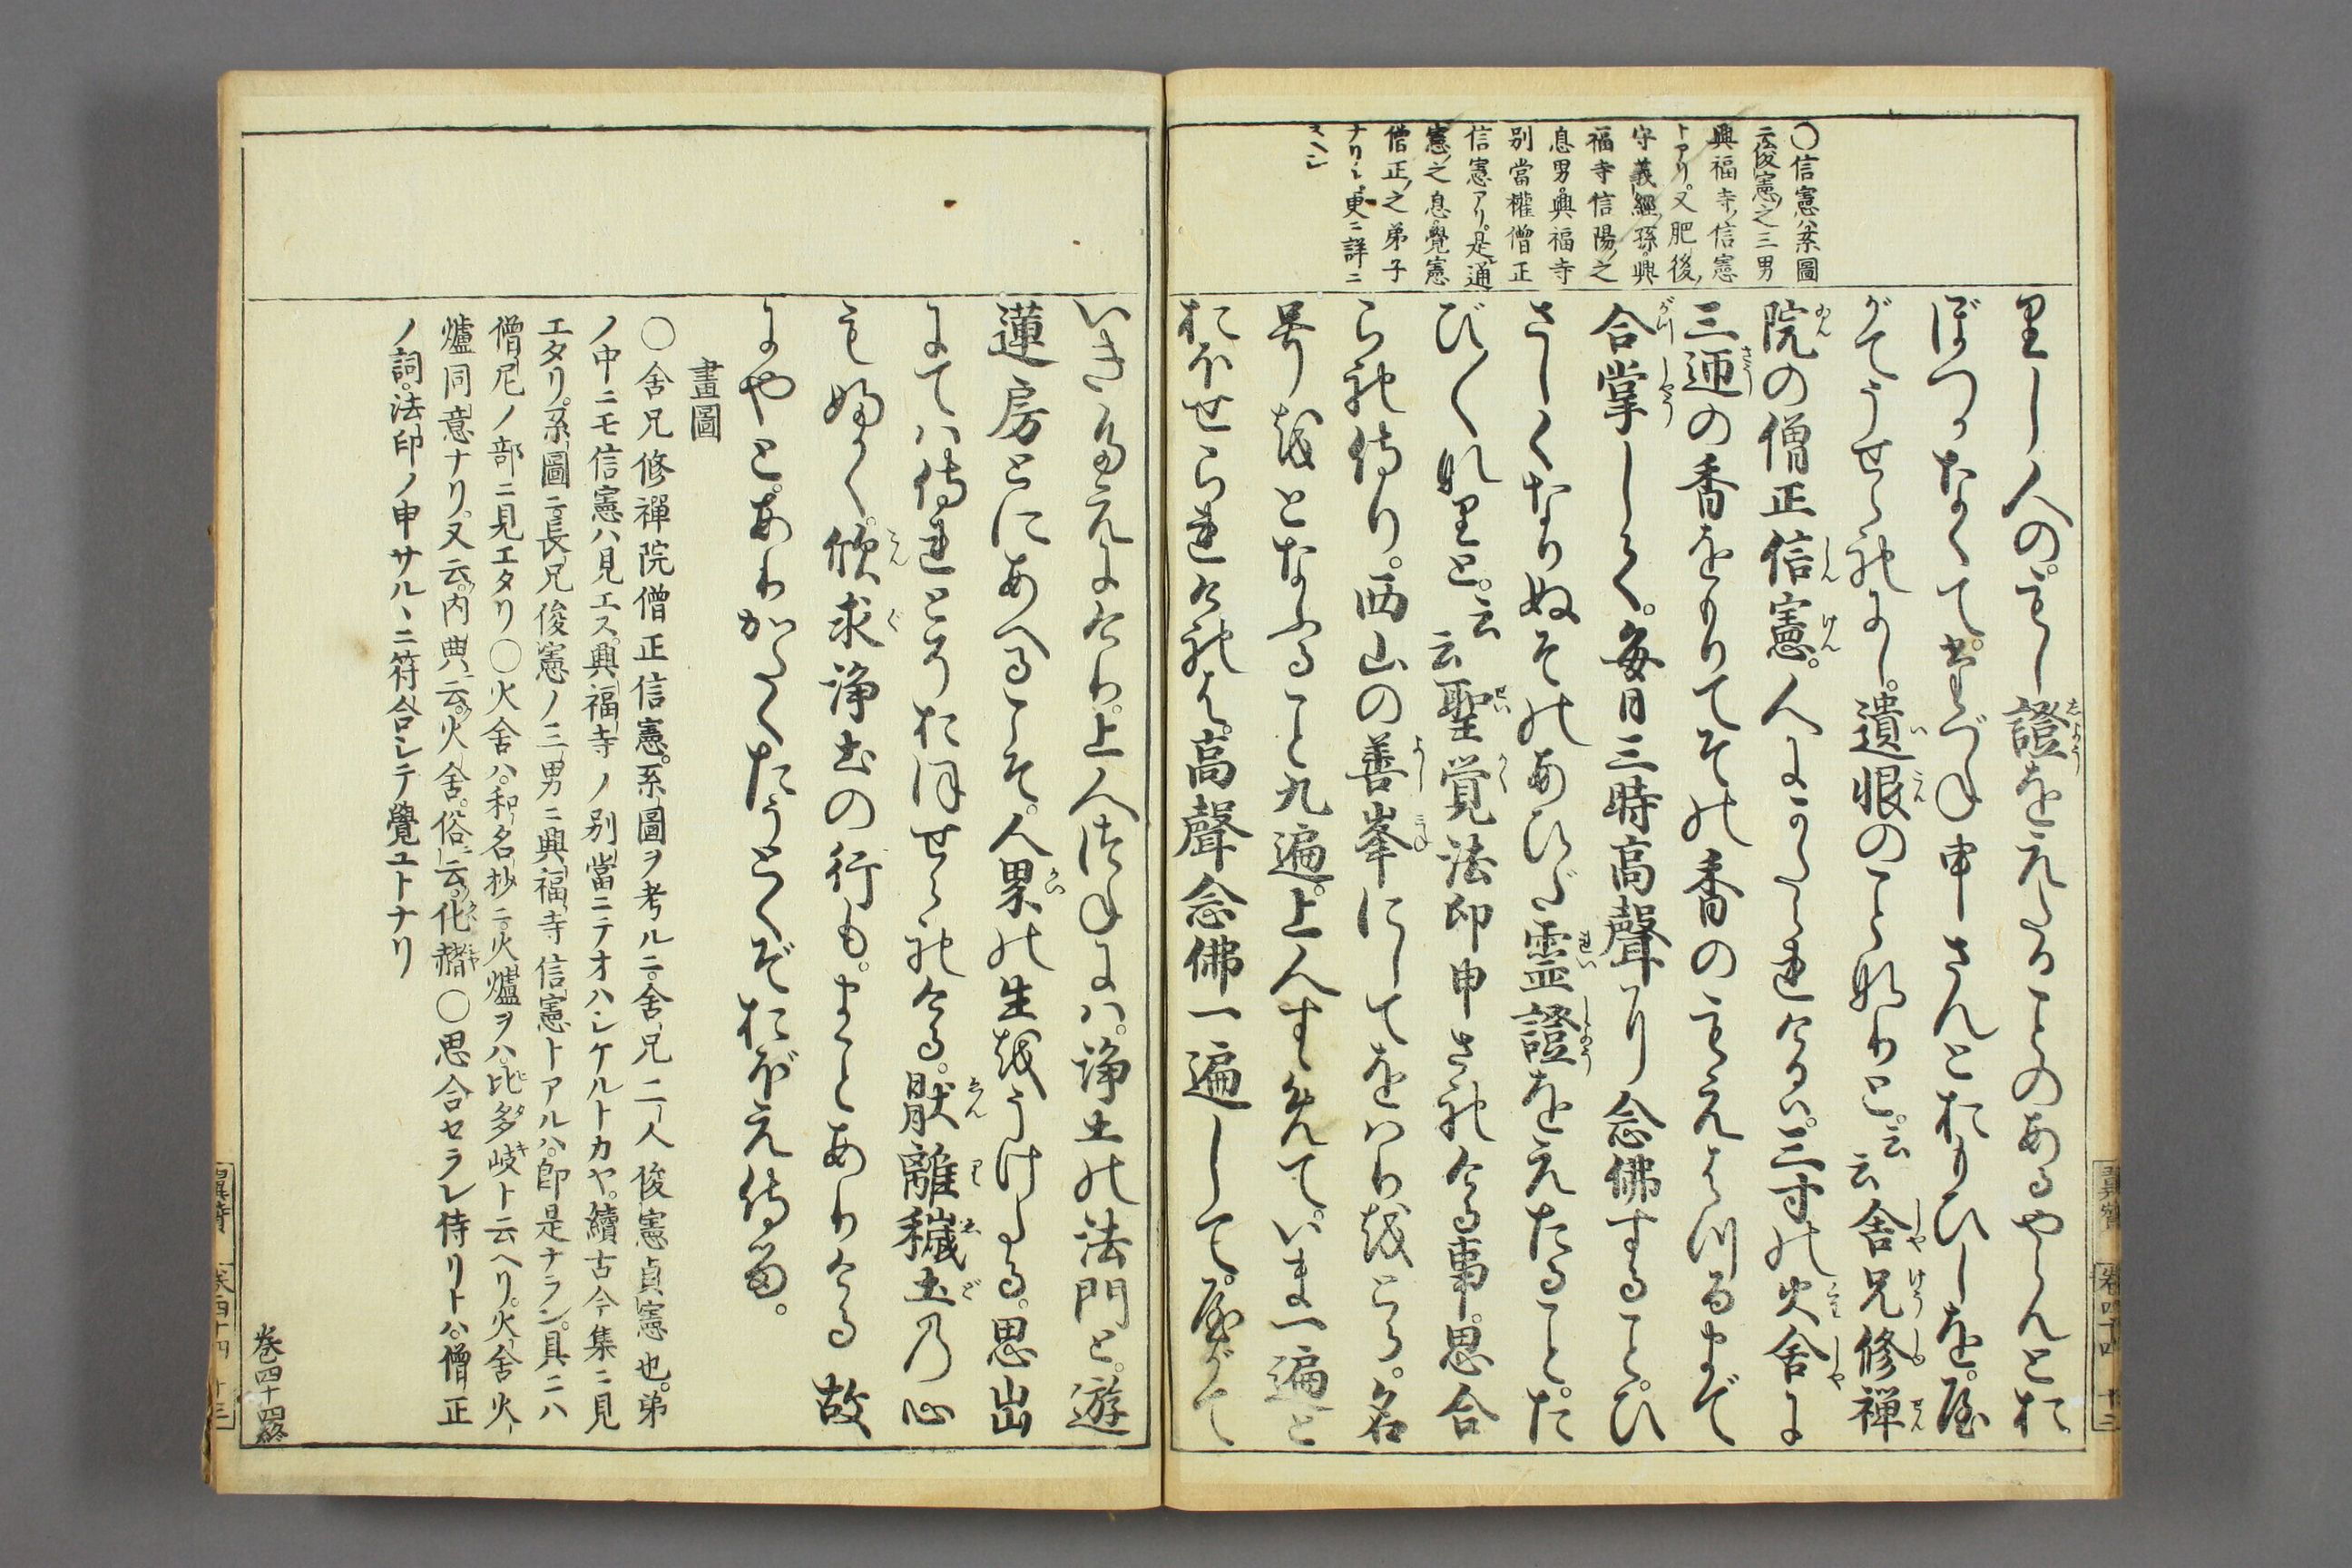 〇信憲ハ系圖
云俊憲之三男
興福寺信憲
トアリ。又肥後
守義經孫。興
福寺信陽之
息男。興福寺
別當權僧正
信憲アリ。是通
憲之息覺憲
僧正之弟子
ナリシ更ニ詳ニ
スヘシ
里し人の。
證をえたることのあるやらんとお
ぼつかなくて。
申さんとおもひしを。
がてうせられにし。遺恨のことなりと。云云 舍兄修禪
院の僧正信憲。人にかたられけるハ。三寸の火舍に
三迊の香をもりてその香のもえはつるまで
合掌して。每日三時高聲に念佛すること。ひ
さしくなりぬそのあひだ靈證をえたること。た
び〱なりと。云云 聖覚法印申され
事。思合
られ侍り。西山の善峯にしてをはりをとる。名
号をとなふること九遍。上人すゝめて。いま一遍と
おほせられければ。高聲念佛一遍して。やがて
いきたえにけり。上人つねにハ。淨土の法門と。遊
蓮房とにあへるこそ。人界の生をうけたる。思出
にてハ侍れとぞおほせられける。厭離穢土の心
もふかく。欣求淨土の行も。まことありける故
にやと。ありがたくたうとくぞおぼえ侍る。
畫圖
〇舍兄修禪院僧正信憲。系圖ヲ考ルニ。舍兄二人俊憲貞憲也。弟
ノ中ニモ信憲ハ見エス。興福寺ノ別當ニテオハシケルトカヤ。續古今集ニ見
エタリ。系圖ニ長兄俊憲ノ三男ニ興福寺信憲トアルハ。卽是ナラン。具ニハ
僧尼ノ部ニ見エタリ〇火舍ハ。和名抄ニ。火爐ヲハ。比多岐ト云ヘリ。火舍火
爐同意ナリ。又云。内典ニ云。火舍。俗ニ云。化赭〇思合セラレ侍リトハ。僧正
ノ詞。法印ノ申サルヽニ符合シテ覺ユトナリ
卷四十四終